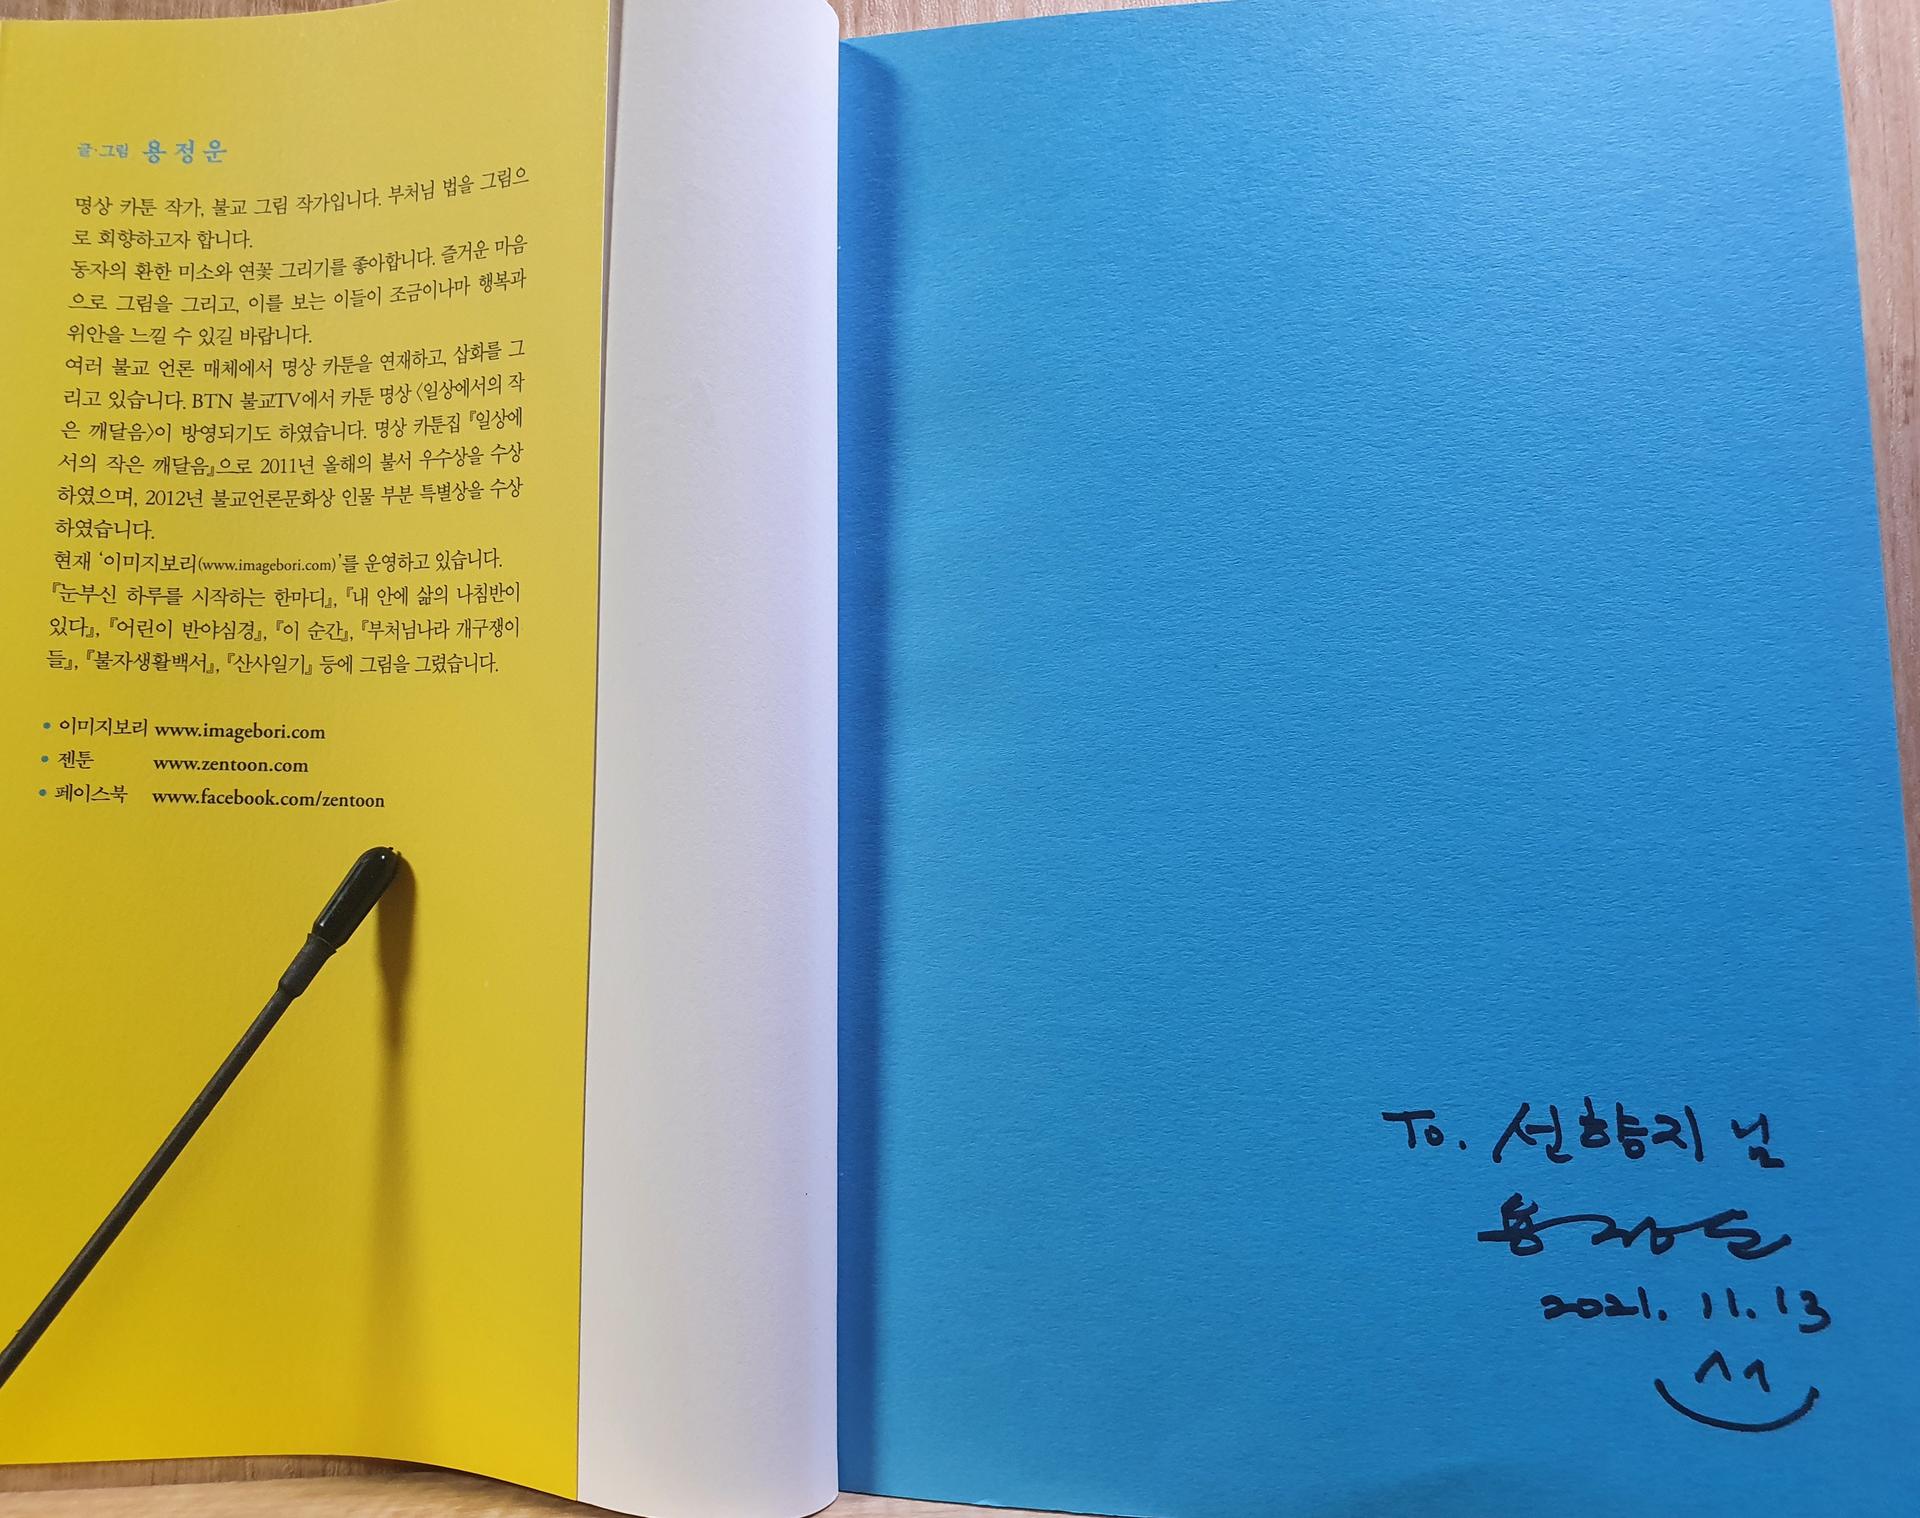 글·그림 용정운
명상 카툰 작가, 불교 그림 작가입니다. 부처님 법을 그림으
로 회향하고자 합니다.
동자의 환한 미소와 연꽃 그리기를 좋아합니다. 즐거운 마음
으로 그림을 그리고, 이를 보는 이들이 조금이나마 행복과
위안을 느낄 수 있길 바랍니다.
여러 불교 언론 매체에서 명상 카툰을 연재하고, 삽화를 그
리고 있습니다. BTN 불교TV에서 카툰 명상 〈일상에서의 작
은 깨달음〉이 방영되기도 하였습니다. 명상 카툰집 『일상에
서의 작은 깨달음』으로 2011년 올해의 불서 우수상을 수상
하였으며, 2012년 불교언론문화상 인물 부분 특별상을 수상
하였습니다.
현재 ‘이미지보리(www.imagebori.com)’를 운영하고 있습니다.
『눈부신 하루를 시작하는 한마디』, 『내 안에 삶의 나침반이
있다』, 『어린이 반야심경』, 『이 순간』, 『부처님나라 개구쟁이
들』, 『불자생활백서』, 『산사일기』 등에 그림을 그렸습니다.
• 이미지보리 www.imagebori.com
• 젠툰 www.zentoon.com
• 페이스북 www.facebook.com/zentoon
To. 선향지 님
용정운
2021. 11. 13
^^